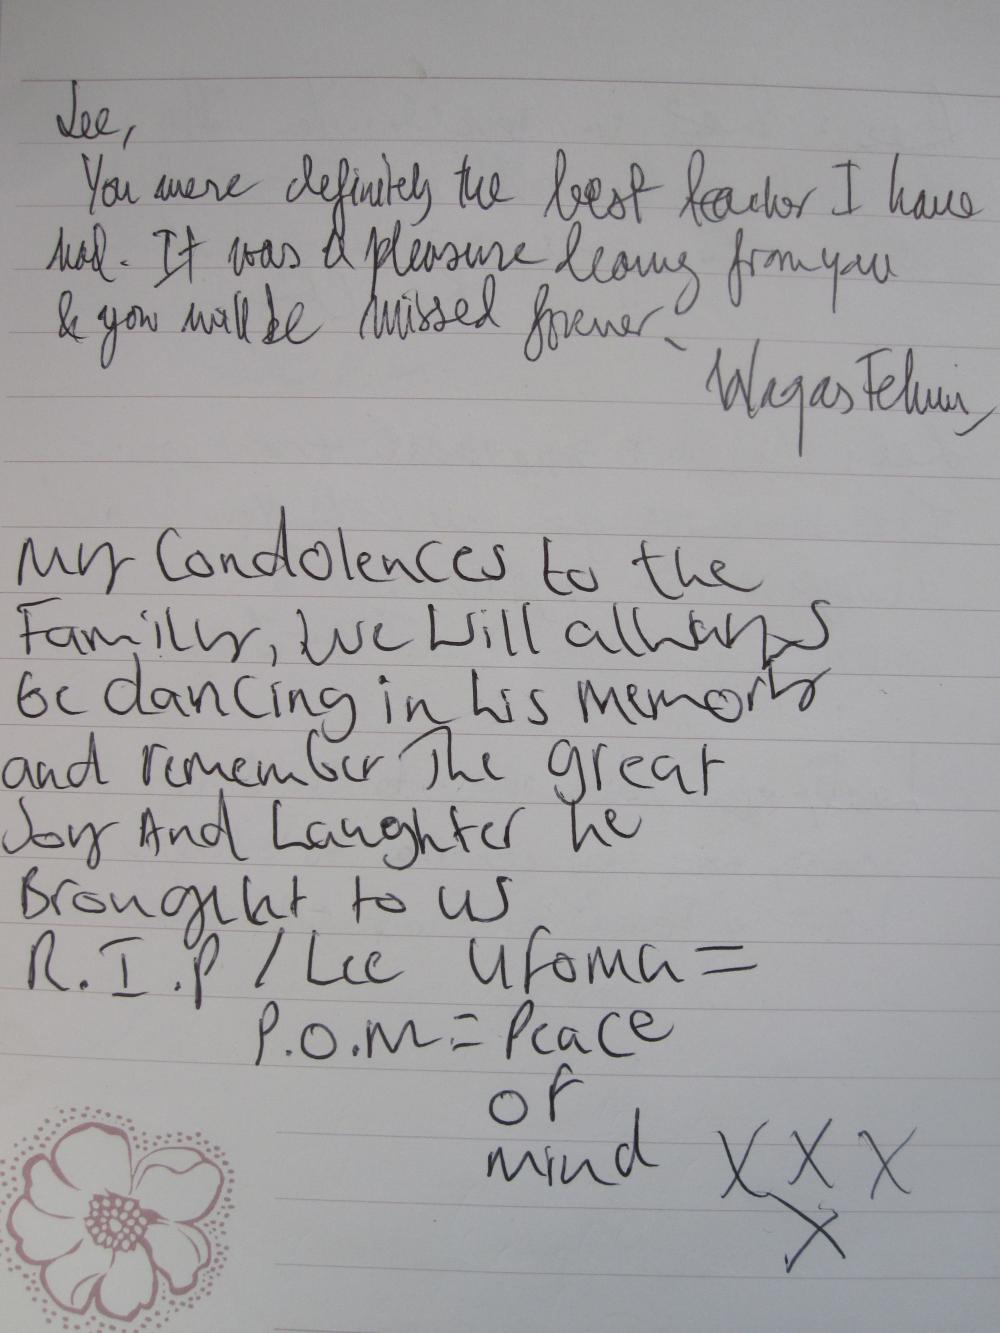 Lee,
You were definitely the best teacher I have
had. It was a pleasure learning from you
& you will be missed forever
Waqas
My Condolences to the
Family, we will always
be dancing in his memory
and remember The great
Joy And Laughter he
Brought to us
R.I.P / Lee Ufoma =
P.O.M = Peace
of
mind X X X
X